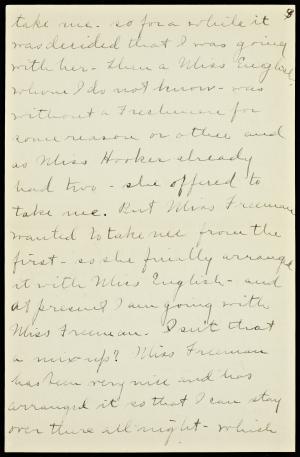 take me. so for a while it
was decided that I was going
with her - then a Miss English
whom I do not know - was
without a Freshman for
some reason or other and
as Miss Hooker already
had two - she offered to
take me. But Miss Freeman
wanted to take me from the
first - so she finally arranged
it with Miss English - and
at present I am going with
Miss Freeman. Isn't that
a mix-up? Miss Freeman
has been very nice and has
arranged it so that I can stay
over there all night - which